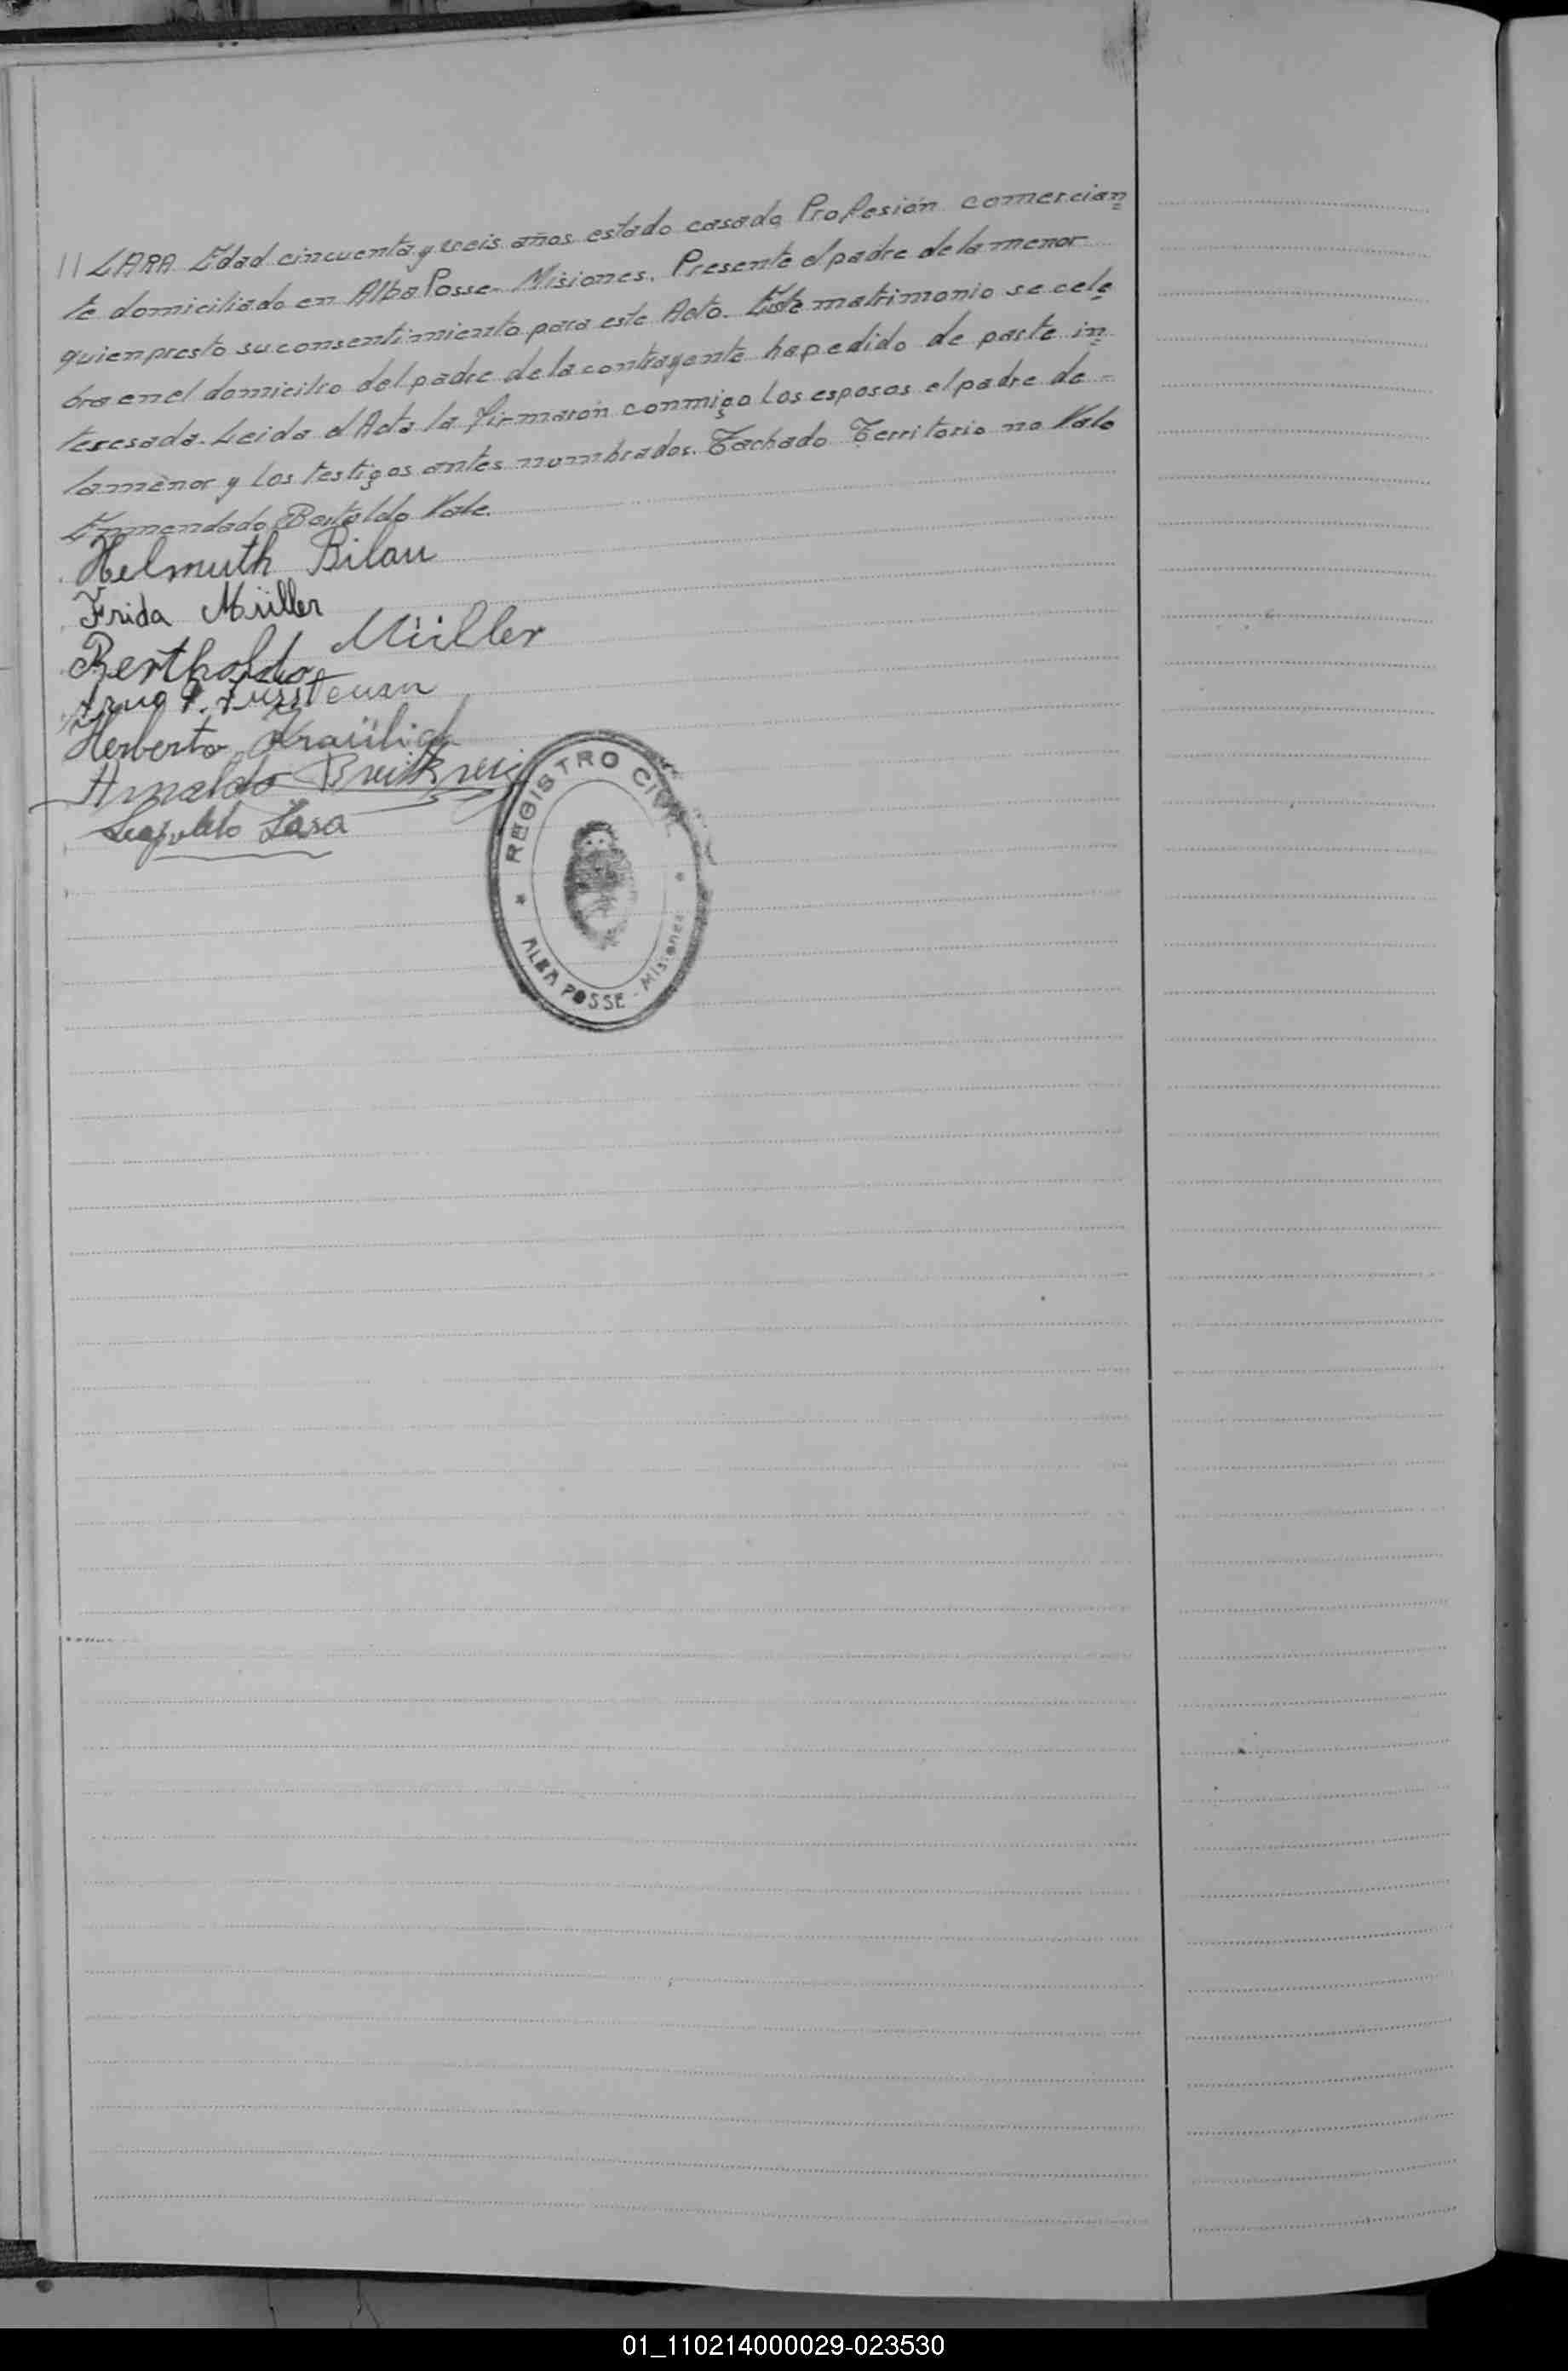 // LARA Edad cincuenta y seis años estado casado Profesión comercian
te domiciliado en Alba Posse - Misiones. Presente el padre de la menor
quien presto su consentimiento para este Acto. Este matrimonio se cele
bra en el domicilio del padre de la contrayente ha pedido de parte in
teresada. Leida el Acta la firmaron conmigo los esposos el padre de -
la menor y los testigos antes nombrados. Tachado Territorio no Vale
Enmendado Bertoldo Vale.
Helmuth Bilau
Frida Müller
Bertholdo Müller
Herberto
Arnaldo
Leopoldo Lara
REGISTRO CIVIL
ALBA POSSE - Misiones
01_110214000029-023530